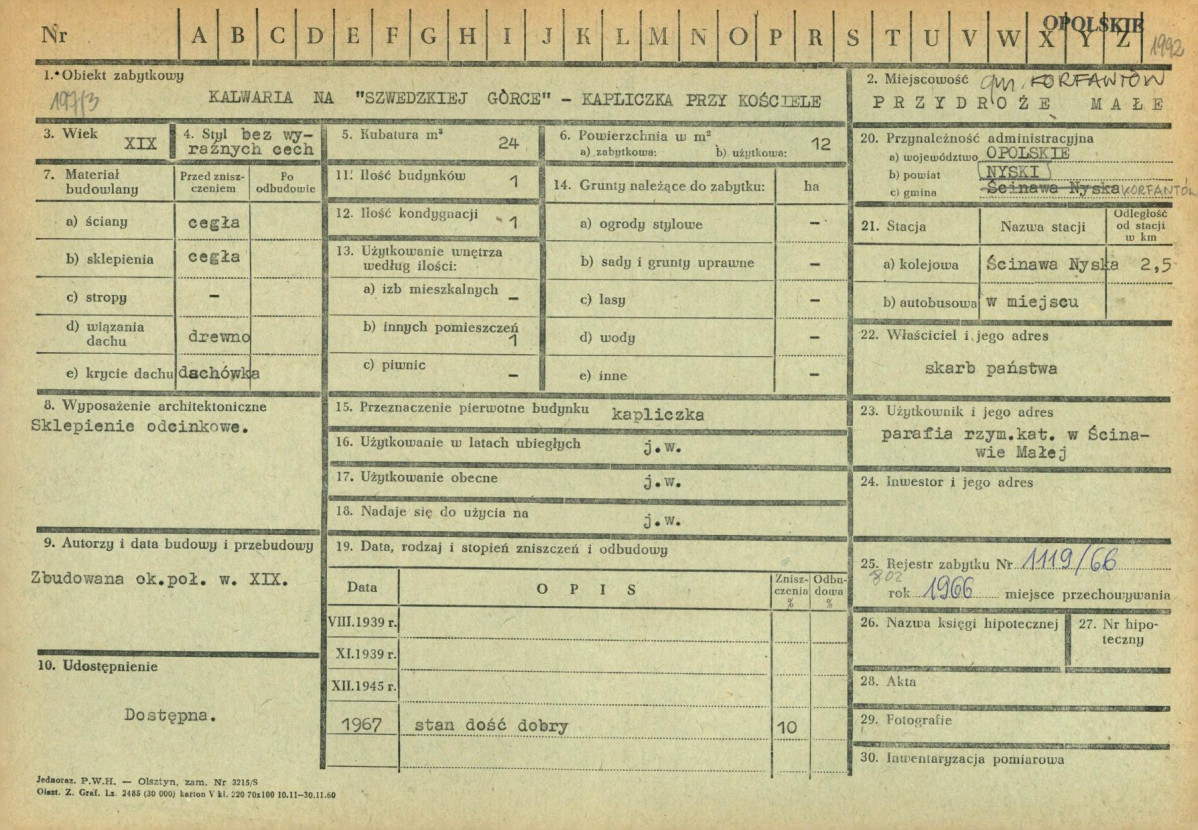 Nr A B C D E F G H I J K L M N O P R S T U V W X Y Z
OPOLSKIE
1992
1. Obiekt zabytkowy
197/3
KALWARIA NA "SZWEDZKIEJ GÓRCE" - KAPLICZKA PRZY KOŚCIELE
2. Miejscowość gm. KORFANTÓW
PRZYDROŻE MAŁE
3. Wiek XIX
4. Styl bez wy-
raźnych cech
5. Kubatura m³ 24
6. Powierzchnia w m² 12
a) zabytkowa: b) użytkowa:
7. Materiał
budowlany
Przed znisz-
czeniem
Po
odbudowie
a) ściany cegła
b) sklepienia cegła
c) stropy -
d) wiązania
dachu drewno
e) krycie dachu dachówka
8. Wyposażenie architektoniczne
Sklepienie odcinkowe.
9. Autorzy i data budowy i przebudowy
Zbudowana ok.poł. w. XIX.
10. Udostępnienie
Dostępna.
11. Ilość budynków 1
12. Ilość kondygnacji 1
13. Użytkowanie wnętrza
według ilości:
a) izb mieszkalnych -
b) innych pomieszczeń 1
c) piwnic -
14. Grunty należące do zabytku: ha
a) ogrody stylowe -
b) sady i grunty uprawne -
c) lasy -
d) wody -
e) inne -
15. Przeznaczenie pierwotne budynku kapliczka
16. Użytkowanie w latach ubiegłych j.w.
17. Użytkowanie obecne j.w.
18. Nadaje się do użycia na j.w.
19. Data, rodzaj i stopień zniszczeń i odbudowy
Data OPIS Znisz-
czenia
% Odbu-
dowa
%
VIII.1939 r.
XI.1939 r.
XII.1945 r.
1967 stan dość dobry 10
20. Przynależność administracyjna
a) województwo OPOLSKIE
b) powiat NYSKI
c) gmina Ścinawa Nyska KORFANTÓW
21. Stacja Nazwa stacji Odległość
od stacji
w km
a) kolejowa Ścinawa Nyska 2,5
b) autobusowa w miejscu
22. Właściciel i jego adres
skarb państwa
23. Użytkownik i jego adres
parafia rzym.kat. w Ścina-
wie Małej
24. Inwestor i jego adres
25. Rejestr zabytku Nr 1119/66
802
rok 1966 miejsce przechowywania
26. Nazwa księgi hipotecznej
27. Nr hipo-
teczny
28. Akta
29. Fotografie
30. Inwentaryzacja pomiarowa
Jednoraz. P.W.H. — Olsztyn, zam. Nr 3215/S
Olszt. Z. Graf. Lz. 2485 (30 000) karton V kl. 220 70x100 10.11—30.11.60